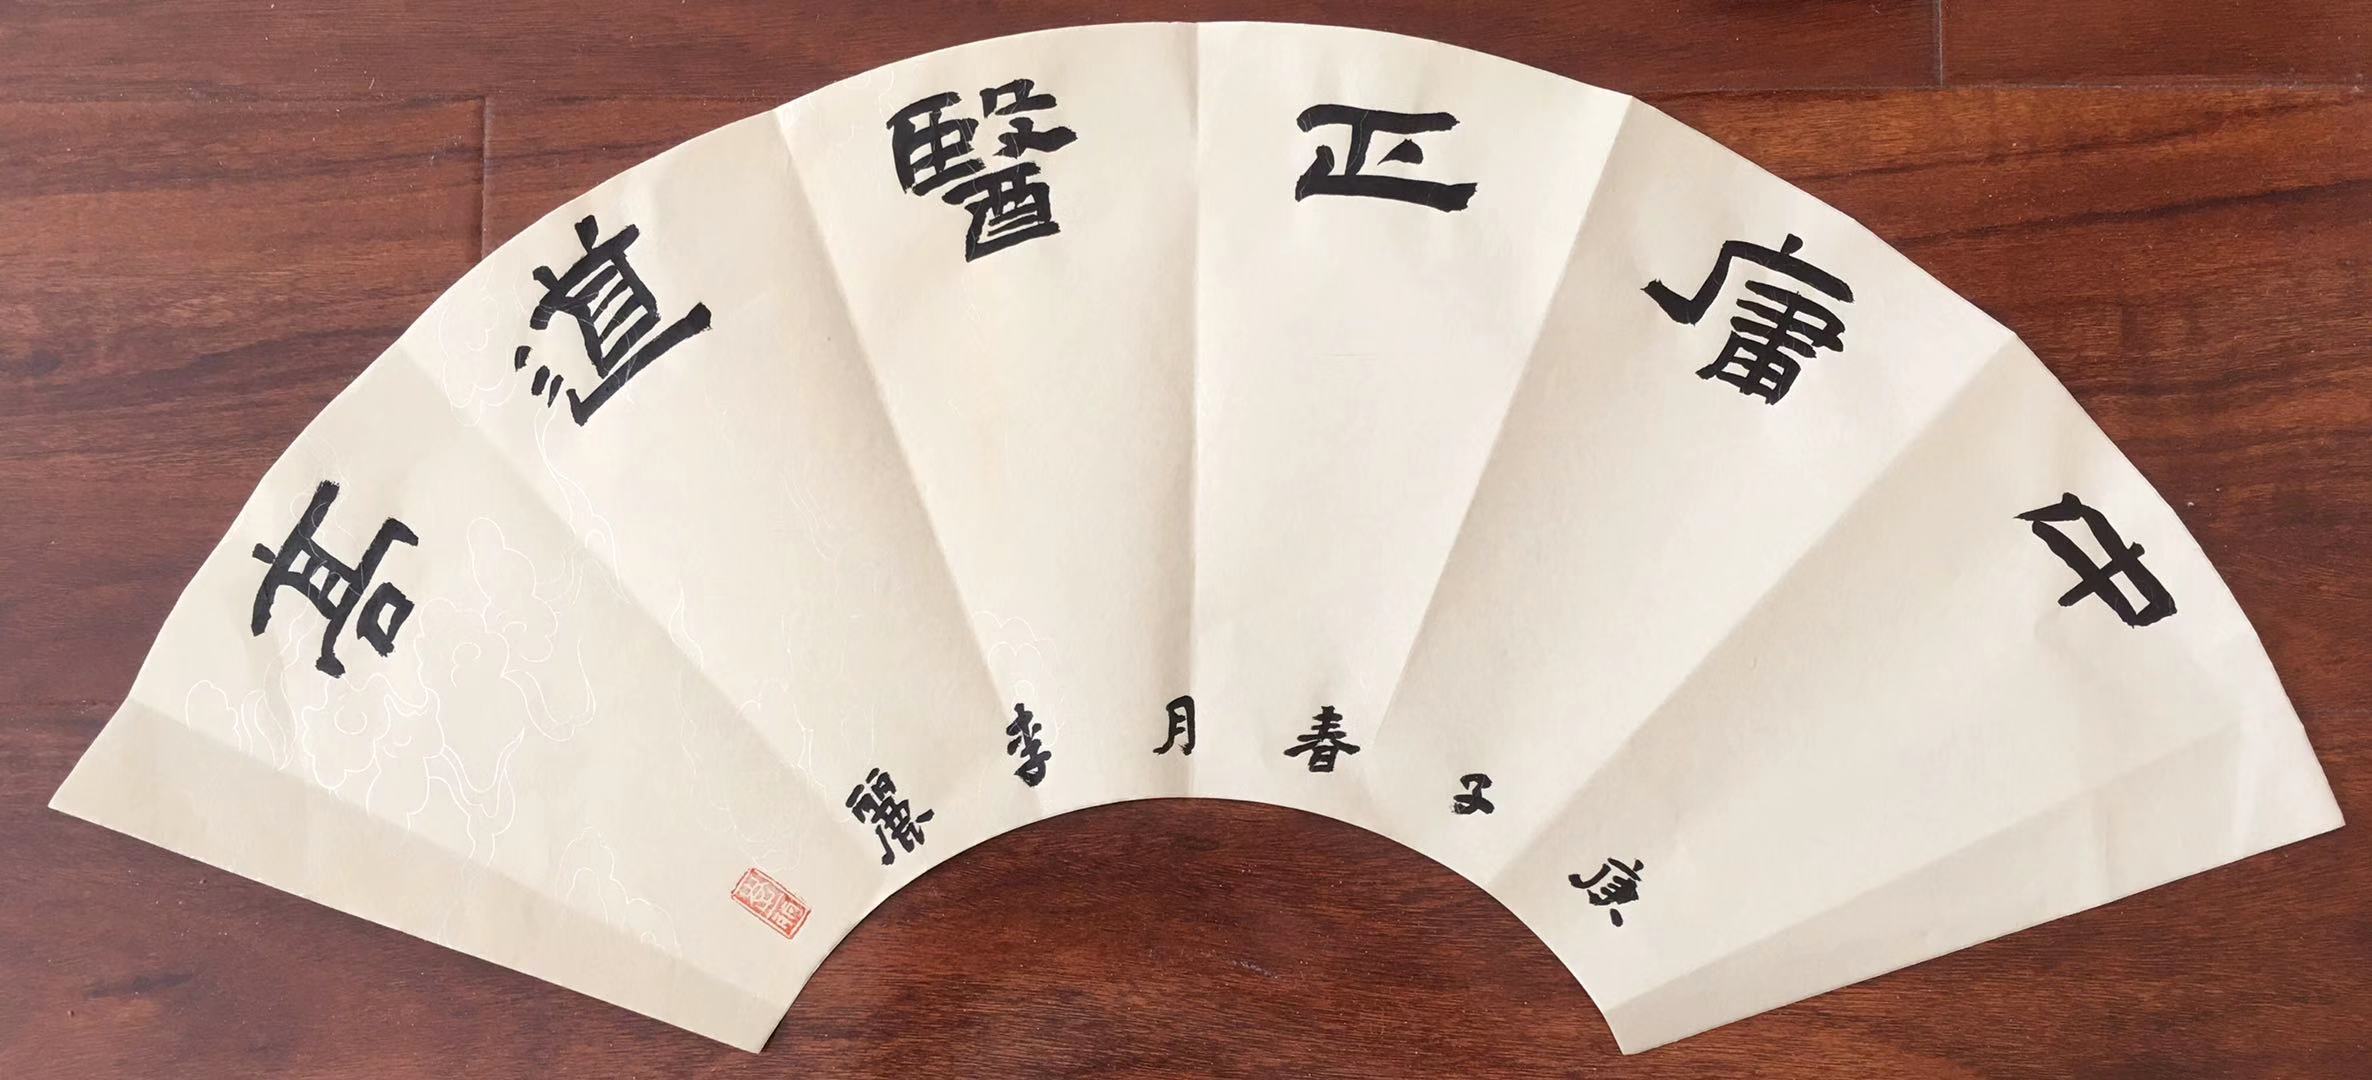 中庸正醫道高
庚子春月李麗